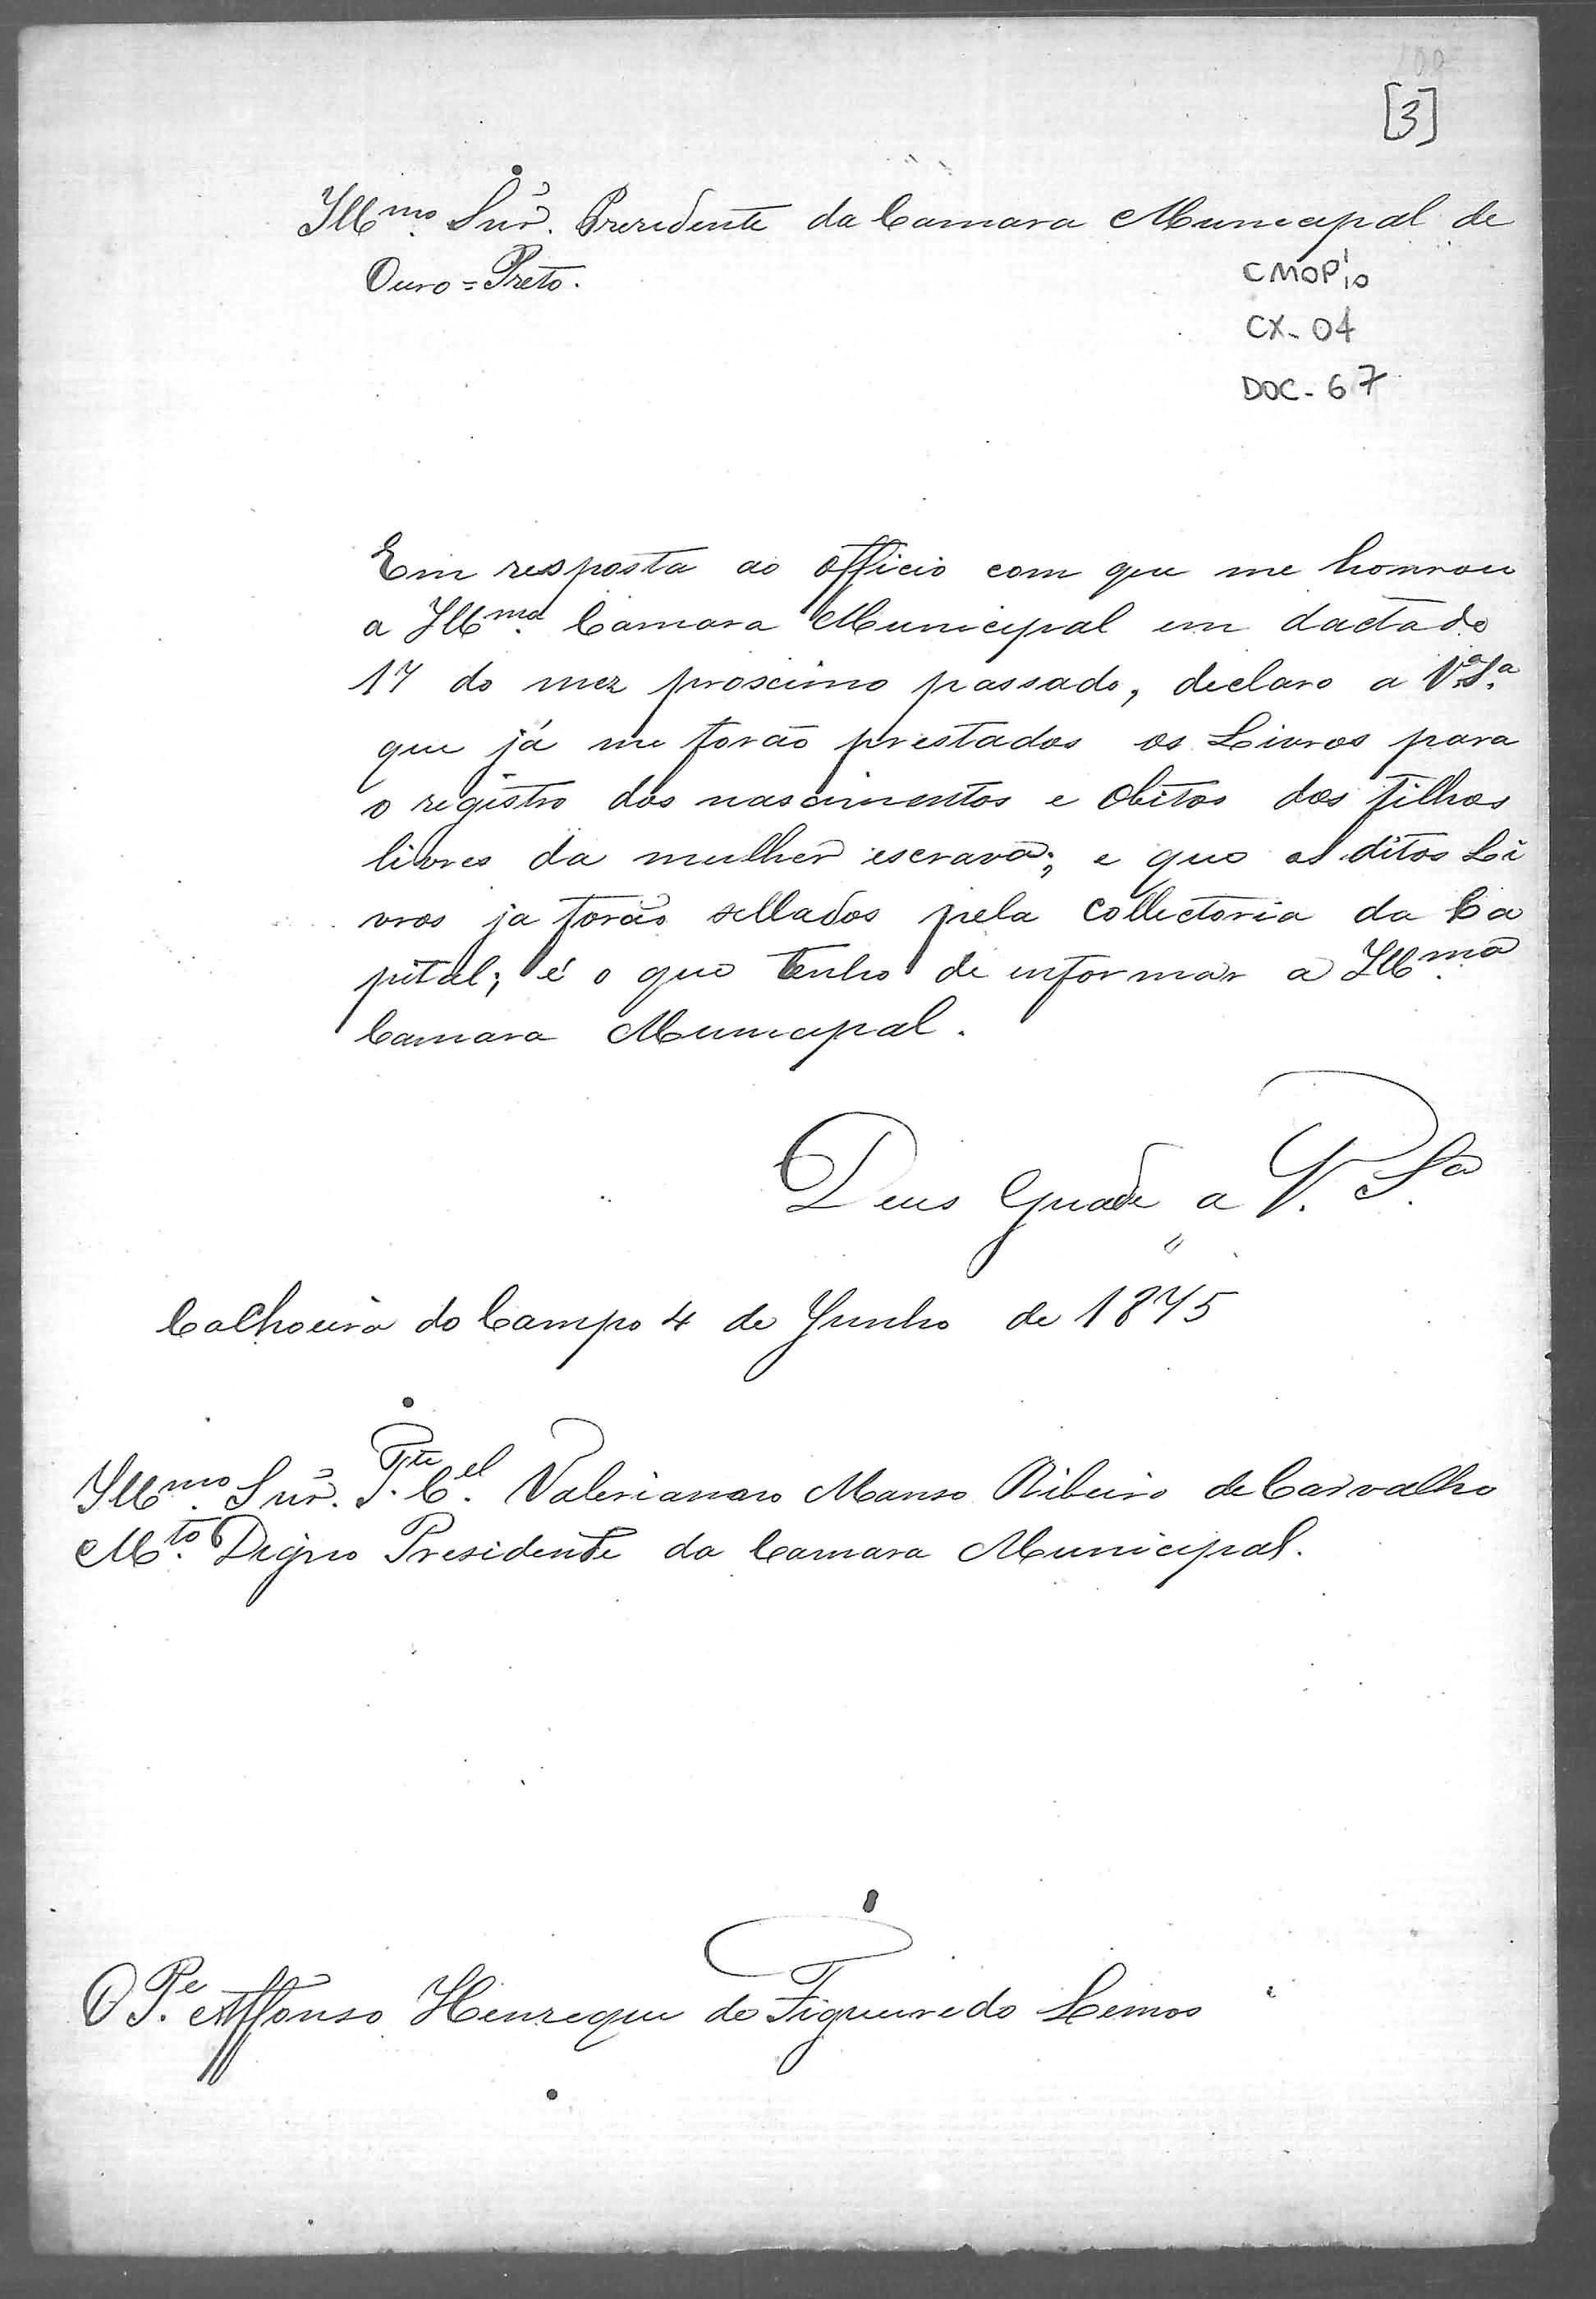 [3]
Illmo. Snr. Prezidente da Camara Municipal de
Ouro=Preto.
CMOP 10
CX-04
DOC-67
Em resposta ao officio com que me honrou
a Illma. Camara Municipal em dactado
17 do mez proscimo passado, declaro a V.ª S.ª
que já me forão prestados os Livros para
o registro dos nascimentos e obitos dos filhos
livres da mulher escrava; e que os ditos Li
vros ja forão sellados pela Collectoria da Ca
pital; é o que tenho de informar a Illma.
Camara Municipal.
Deus Guade a V. Sa.
Cachoeira do Campo 4 de Junho de 1875
Illmo. Snr. Tte. Cel. Valerianno Manso Ribeiro de Carvalho
Mto. Digno Presidente da Camara Municipal.
O Pe. Affonso Henreque de Figueiredo Lemos